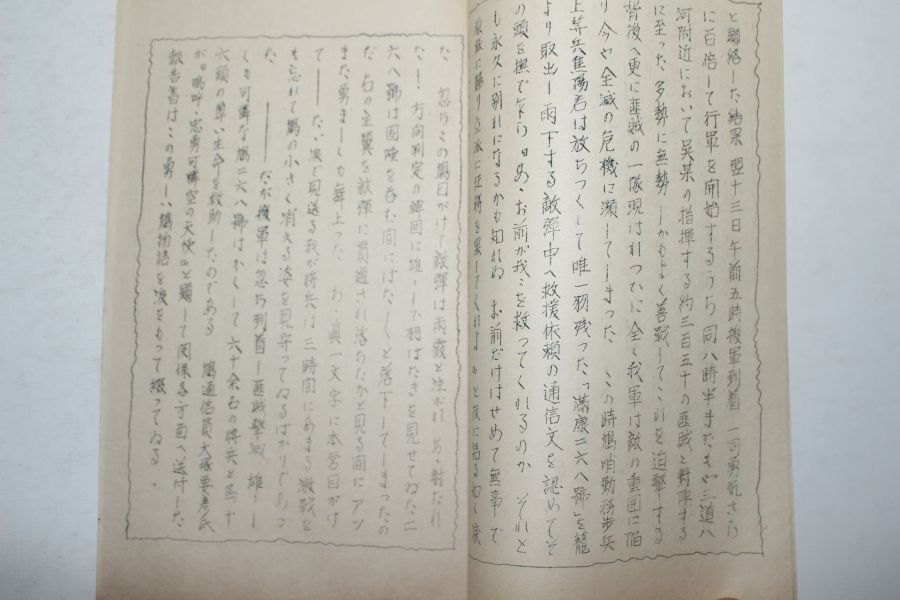 と聯絡した結果 翌十三日午前五時援軍到着 一同勇気さら
に百倍して行軍を開始するうち 同八時半またもや三道ハ
河附近において呉某の指揮する約三百五十の匪賊と対峙する
に至った 多勢に無勢 しかもよく善戦してこれを迫撃する
背後へ更に匪賊の一隊現はれつひに全く我軍は敵の重囲に陥
り 今や全滅の危機に瀕してしまった この時鳩哨勤務歩兵
上等兵 は放ちつくして唯一羽残った「満康二六八號」を籠
より取出し 雨下する敵弾中へ救援依頼の通信文を認めてそ
の頭を撫で乍ら 〃あゝお前が我々を救ってくれるのか それと
も永久に別れになるかも知れぬ お前だけはせめて無事で
原隊に帰り立派に任務を果してくれよ〃と友に語る如く涙
た 忽ちこの鳩目がけて敵弾は雨霰と注がれ あゝ射たれ
た！ 方向判定の 回に雄々しい羽ばたきを見せてゐた二
六八號は固唾を呑む間にはたゝと落下してしまったの
だ 右の主翼を敵弾に貫通され落ちたかと見る間にアツ
また勇ましくも舞上った おゝ真一文字に本営目がけ
て―― たゞ涙で見送る我が将兵は三時間にあまる激戦を
も忘れて鳩の小さく消える姿を見守ってゐるばかりであっ
た ―――― だが援軍は忽ち到着―匪賊撃滅 雄々し
くも可憐な鳩二六八號はかくして六十余名の将兵と馬十
六頭の尊い生命を救助したのである 鳩通信員大塚 氏
が〃嗚呼・忠勇可憐空の天使〃と題して関係各方面へ送付した
報告書はこの勇しい鳩物語を涙をもって綴ってゐる．